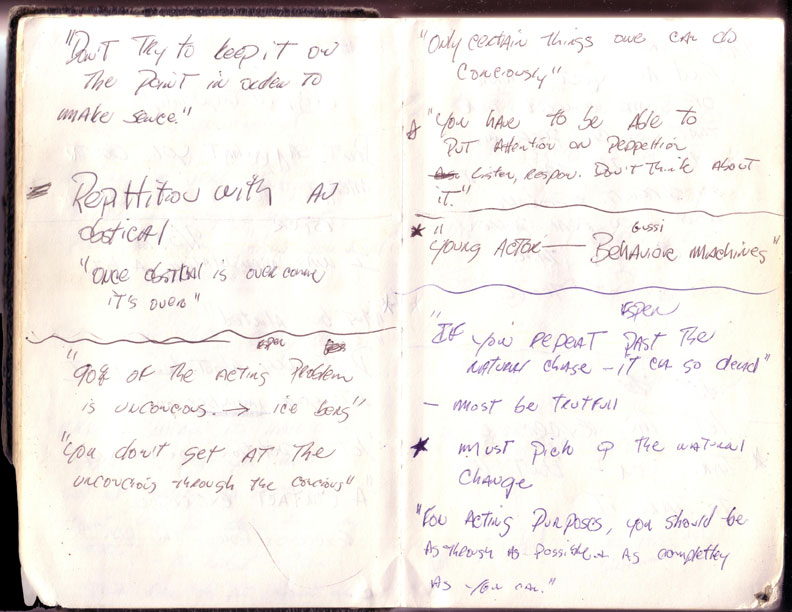 "Don't Try to keep it on
the point in order to
make sence."
Repittition with an
obstical
"Once obstical is over come
it's over"
Espen
"90% of the acting problem
is unconcious. → ice berg"
"you don't get at the
unconcious through the concious"
"Only certain things one can do
conciously"
"you have to be able to
put attention on
listen, respon. Don't think about
it."
Gussi
"Young actor — Behavior machines"
Espen
"If you repeat past the
natural chage - it ca go dead"
- most be trutfull
* must pick up the natural
change
"For acting purposes, you should be
as through as possible & as completley
as you can."